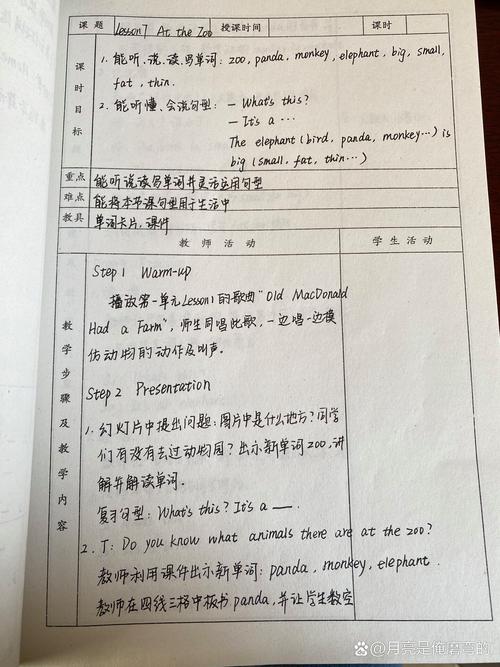 课题 Lesson 7 At the Zoo 授课时间 课时
课时目标
1. 能听、说、读、写单词: zoo, panda, monkey, elephant, big, small,
fat, thin.
2. 能听懂、会说句型: — What's this?
— It's a …
The elephant (bird, panda, monkey…) is
big (small, fat, thin…)
重点 能听说读写单词并灵活运用句型
难点 能将本节课句型用于生活中
教具 单词卡片、课件
教师活动 学生活动
教学步骤及教学内容
Step 1 Warm-up
播放第一单元Lesson1的歌曲“Old MacDonald
Had a Farm”, 师生同唱此歌, 一边唱一边模
仿动物的动作及叫声.
Step 2 Presentation
1. 幻灯片中提出问题: 图片中是什么地方? 同学
们有没有去过动物园? 出示新单词 zoo, 讲
解并解读单词.
复习句型: What's this? It's a —.
2. T: Do you know what animals there are at the zoo?
教师利用课件出示新单词: panda, monkey, elephant.
教师在四线三格中板书panda, 并让学生数空
@月亮是俺磨弯的